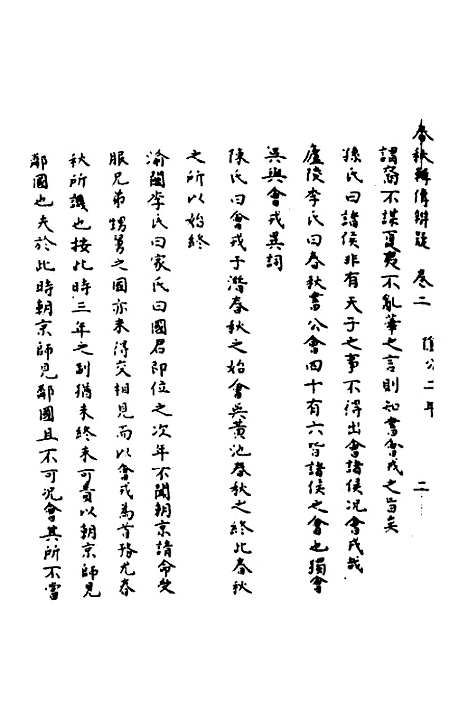 春秋輯傳辨疑 卷二 隱公二年 二
謂裔不謀夏夷不亂華之言則知書會戎之旨矣
孫氏曰諸侯非有天子之事不得出會諸侯况會戎哉
廬陵李氏曰春秋書公會四十有六皆諸侯之會也獨會
吳與會戎異詞
陳氏曰會戎于潛春秋之始會吳黃池春秋之終此春秋
之所以始終
渝關李氏曰家氏曰國君即位之次年不聞朝京請命受
服兄弟甥舅之國亦未得交相見而以會戎為首務尤春
秋所譏也按此時三年之制猶未終未可責以朝京師見
鄰國也夫於此時朝京師見鄰國且不可况會其所不當